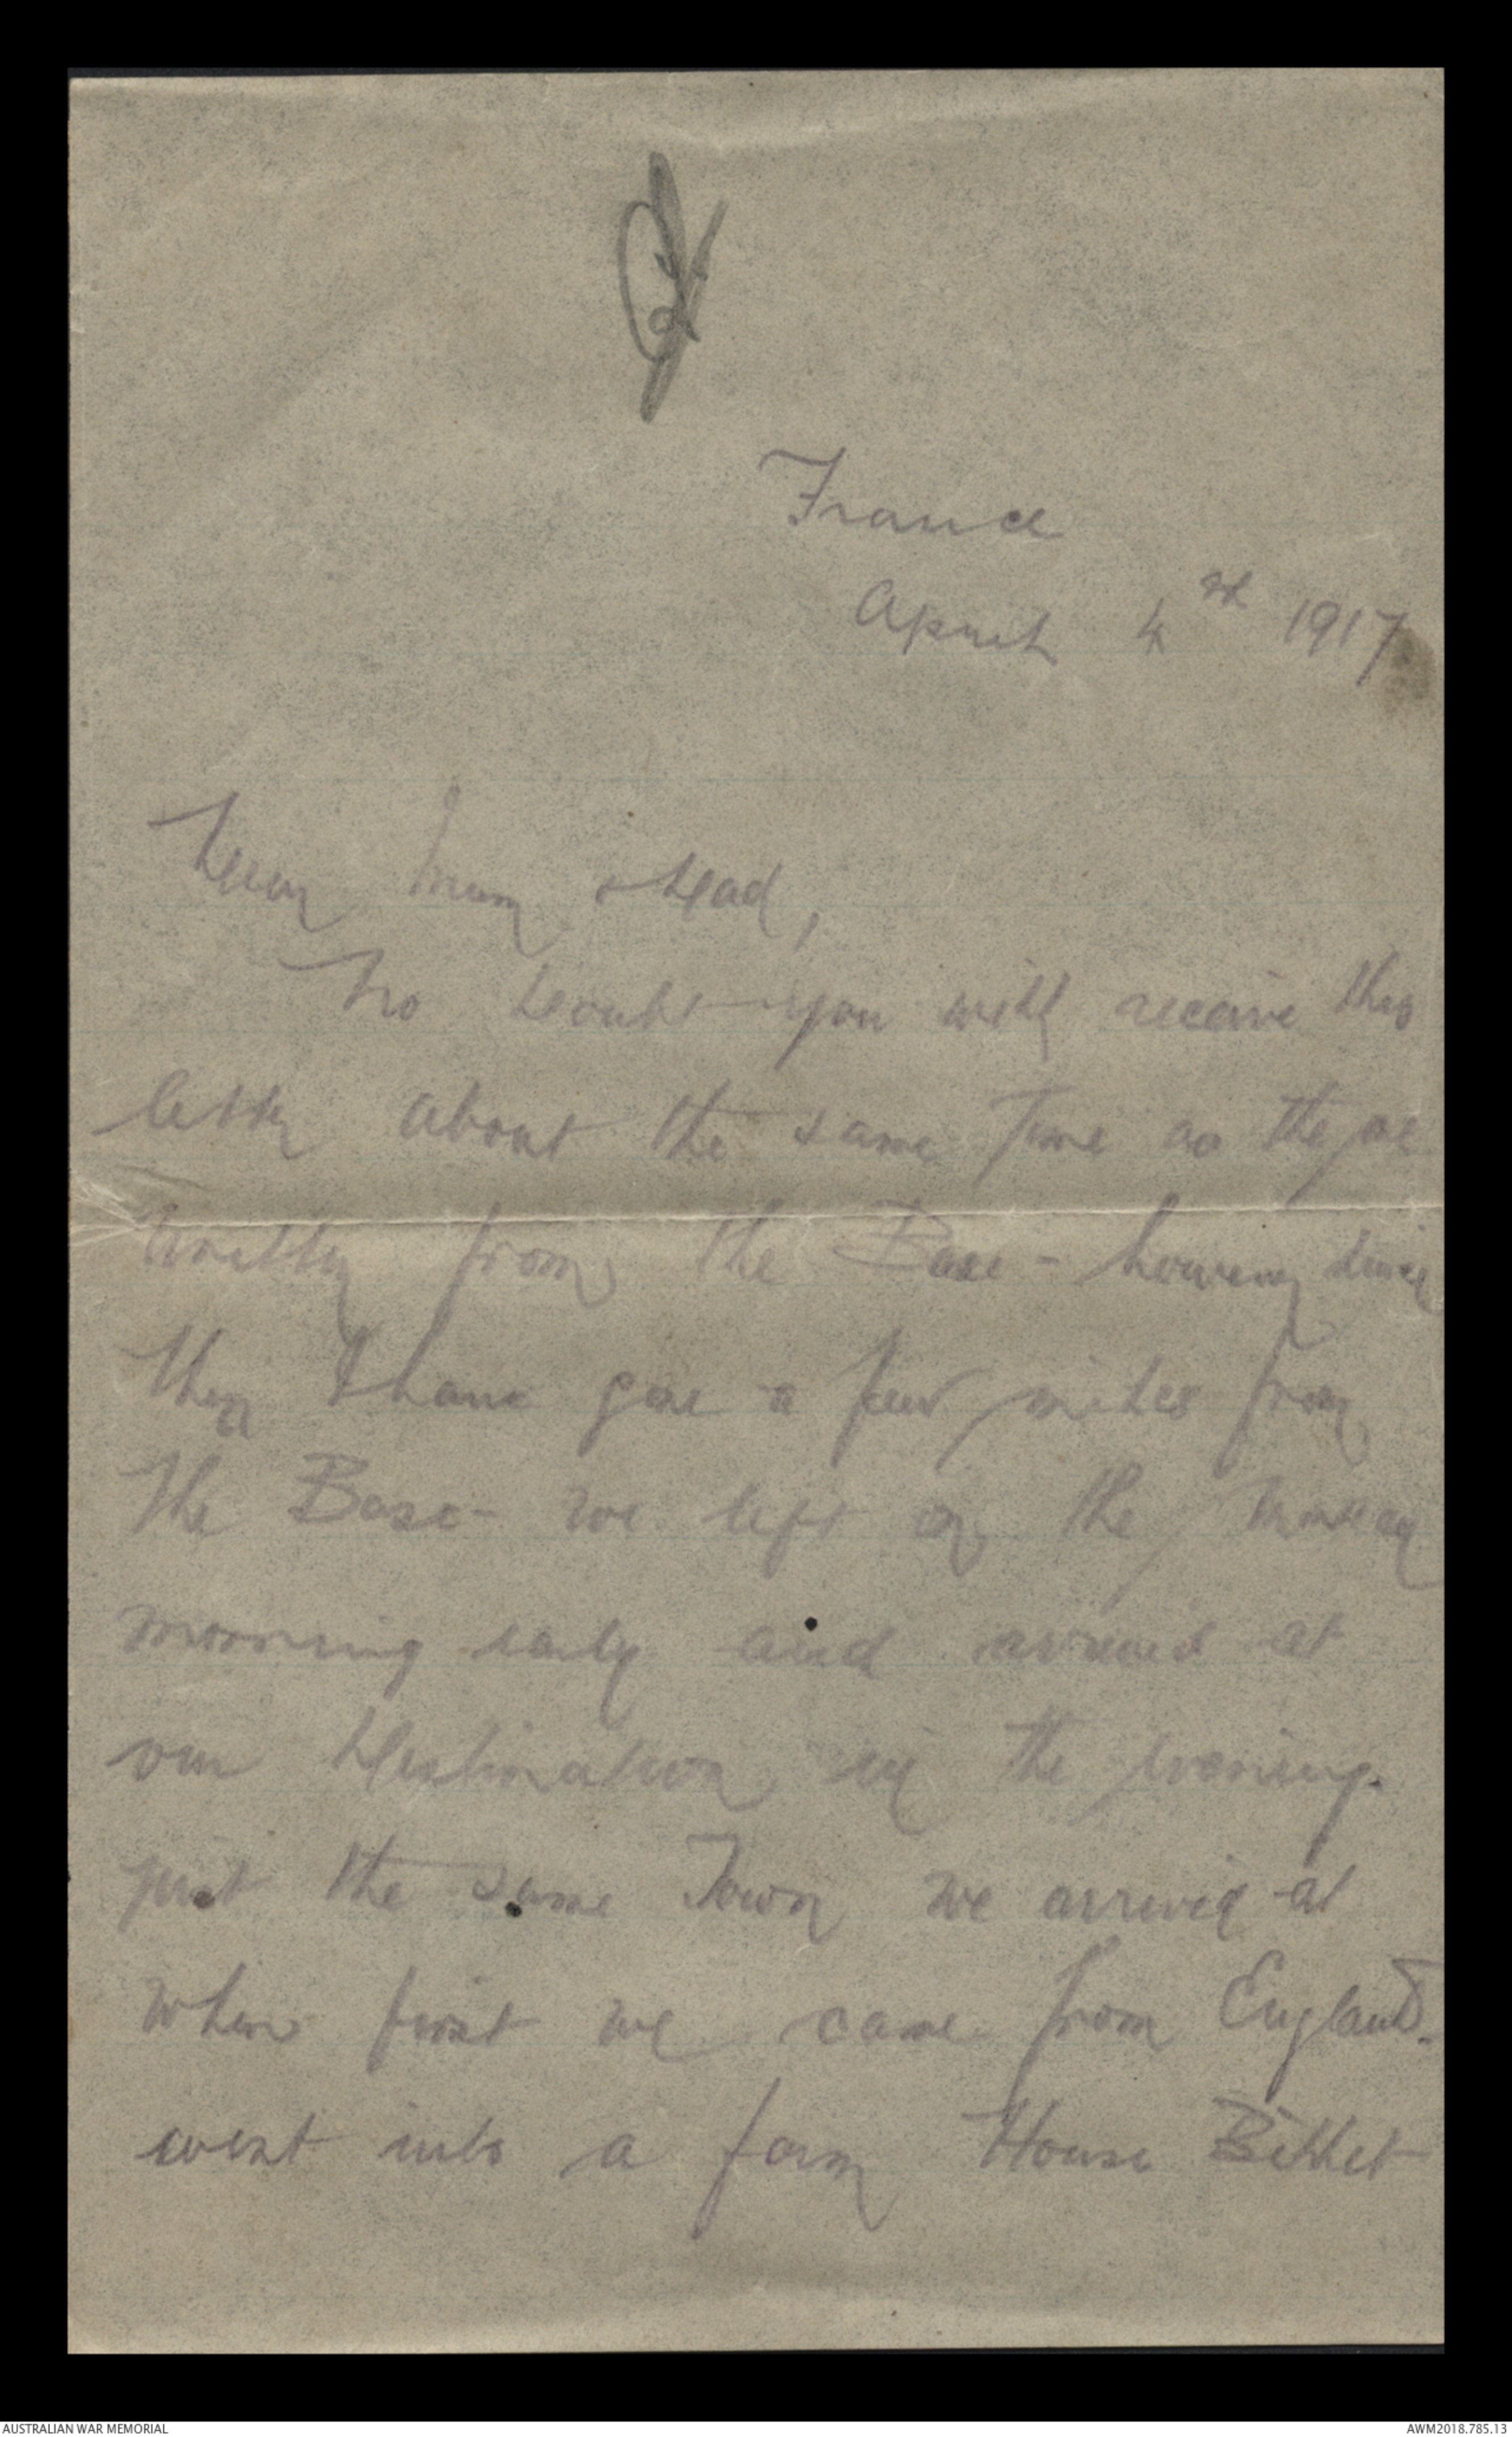 France
April 4th 1917.
Dear Mum & Dad,
No doubt you will receive this
letter about the same time as the one
written from the Base - however since
then I have gone a few miles from
the Base - we left on the
morning early and arrived at
our destination in the evening.
just the same Town we arrived at
when first we came from England.
went into a farm House Billet
AUSTRALIAN WAR MEMORIAL
AWM2018.785.13